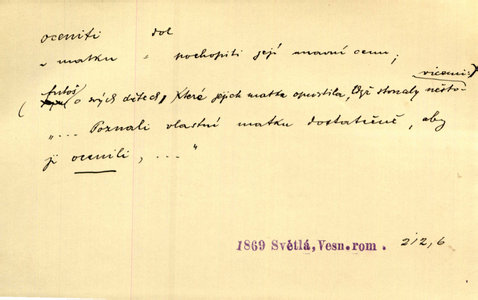 oceniti dok
~ matku = pochopiti její mravní cenu;
(o svých dětech, které jejich matka opustila, když stonaly
"... Poznali vlastní matku dostatečně, aby
ji ocenili, ..."
1869 Světlá, Vesn. rom. 212,6